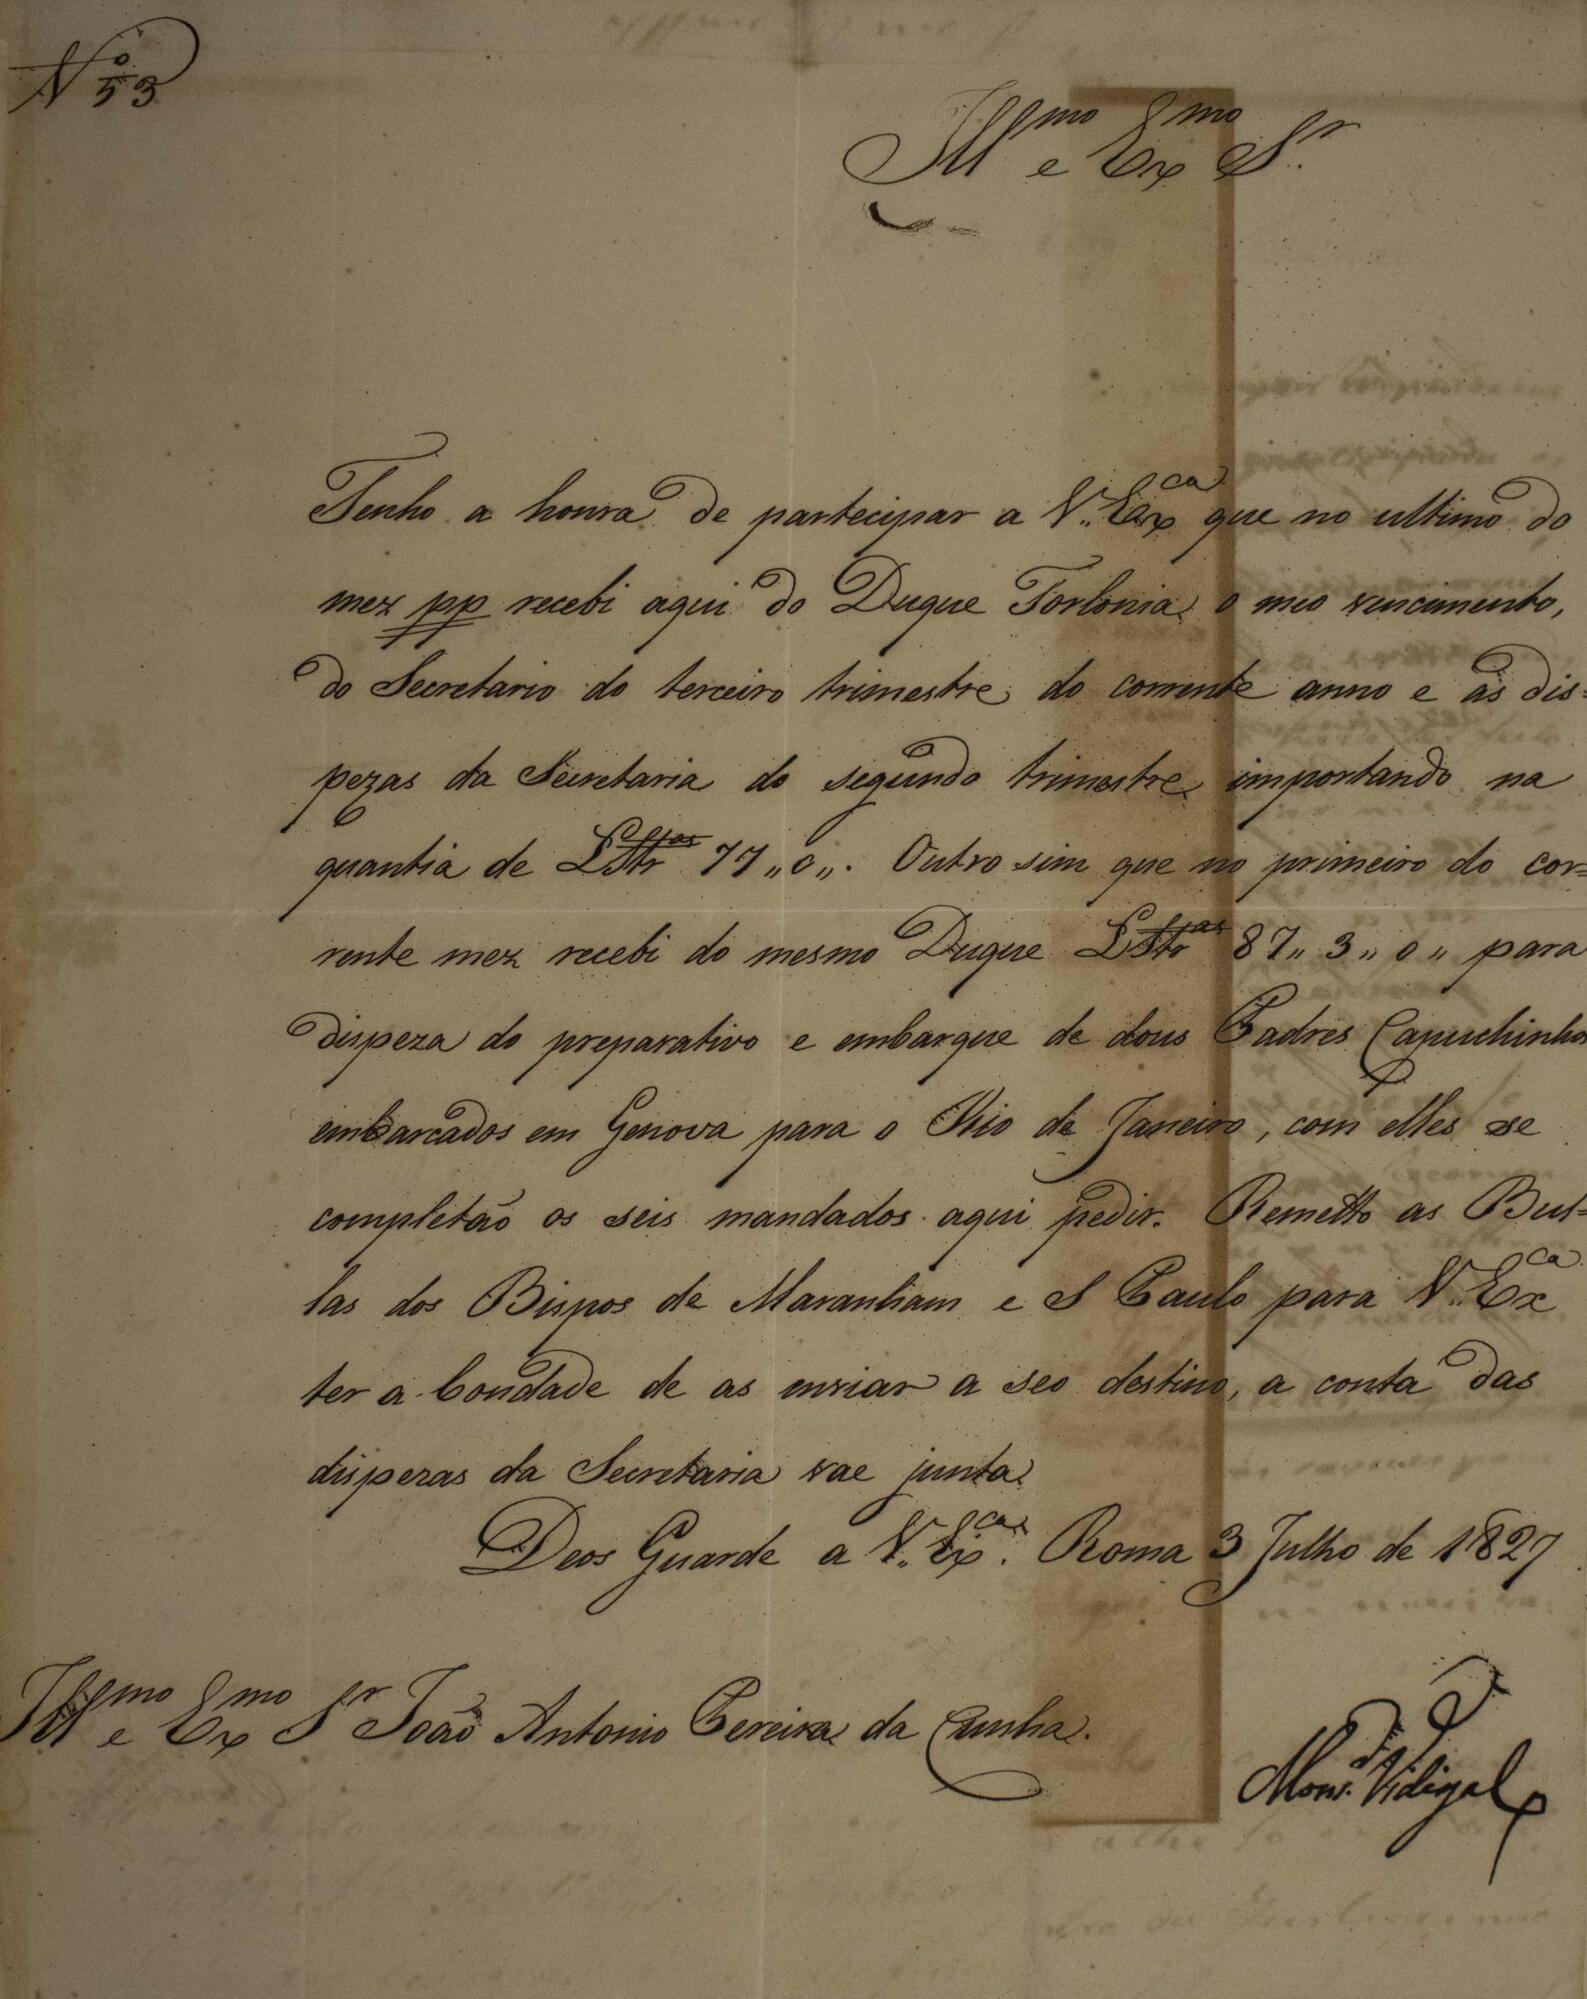 Nº 53
Illmo e Exmo Sr.
Tenho a honra de partecipar a V. Exca que no ultimo do
mez pp recebi aqui do Duque Torlonia o meo vencimento,
do Secretario do terceiro trimestre do corrente anno e as dis=
pezas da Secretaria do segundo trimestre importando na
quantia de LStras 77 ,, 0 ,, . Outro sim que no primeiro do cor=
rente mez recebi do mesmo Duque LStras 87 ,, 3 ,, 0 ,, para
dispeza do preparativo e embarque de dous Padres Capuchinhos
embarcados em Genova para o Rio de Janeiro, com elles se
completão os seis mandados aqui pedir. Remetto as Bul=
las dos Bispos de Maranham e S Paulo para V. Exca
ter a bondade de as enviar a seo destino, a conta das
dispezas da Secretaria vae junta
Deos Guarde a V. Exca. Roma 3 Julho de 1827
Illmo e Exmo Sr João Antonio Pereira da Cunha.
Monsr. Vidigal